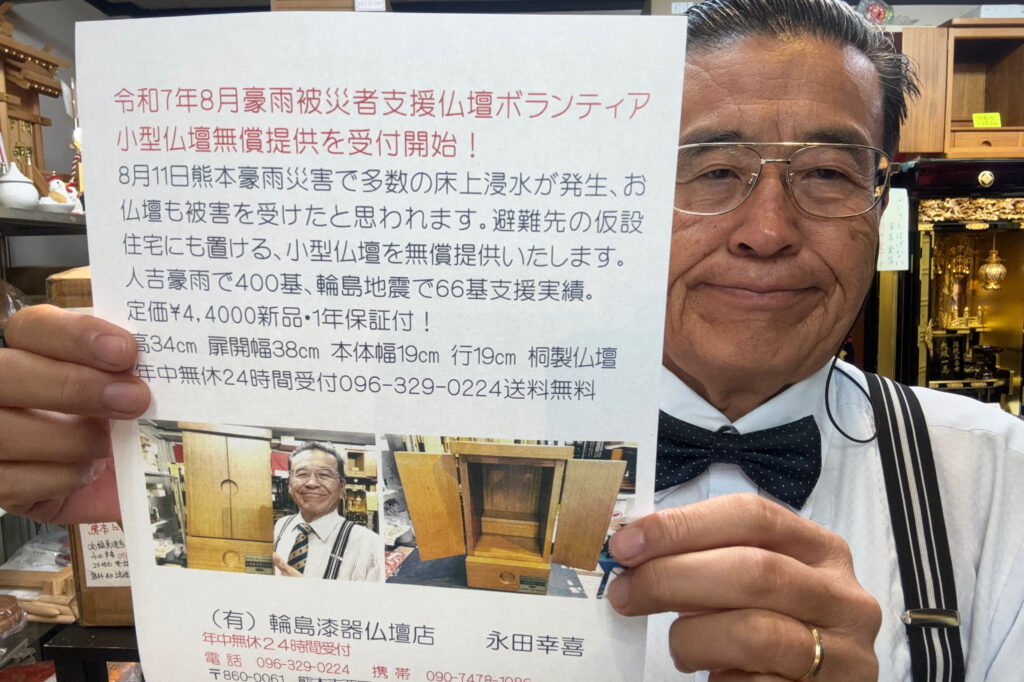 令和7年8月豪雨被災者支援仏壇ボランティア
小型仏壇無償提供を受付開始！
8月11日熊本豪雨災害で多数の床上浸水が発生、お
仏壇も被害を受けたと思われます。避難先の仮設
住宅にも置ける、小型仏壇を無償提供いたします。
人吉豪雨で400基、輪島地震で66基支援実績。
定価¥4,4000新品・1年保証付！
高34cm 扉開幅38cm 本体幅19cm 行19cm 桐製仏壇
年中無休24時間受付096-329-0224送料無料
（有）輪島漆器仏壇店 永田幸喜
年中無休24時間受付
電話 096-329-0224 携帯 090-7478-1086
〒860-0061